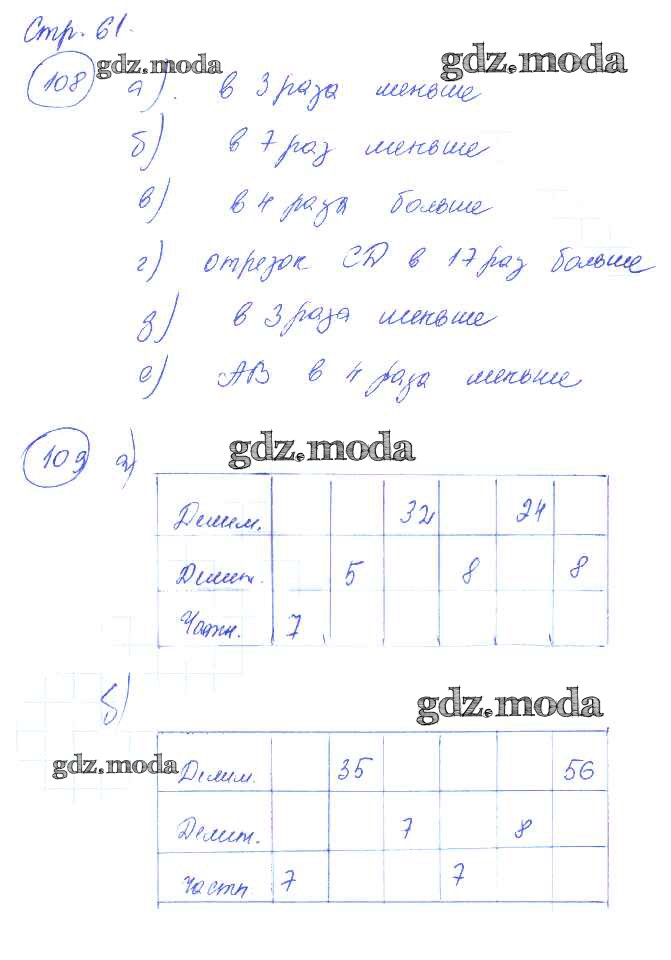 Стр. 61.
gdz.moda gdz.moda
108 а) в 3 раза меньше
б) в 7 раз меньше
в) в 4 раза больше
г) отрезок CD в 17 раз больше
д) в 3 раза меньше
е) АВ в 4 раза меньше
109 а) gdz.moda
Делим. 32 24
Делит. 5 8 8
Частн. 7
б) gdz.moda
gdz.moda
Делим. 35 56
Делит. 7 8
Частн 7 7